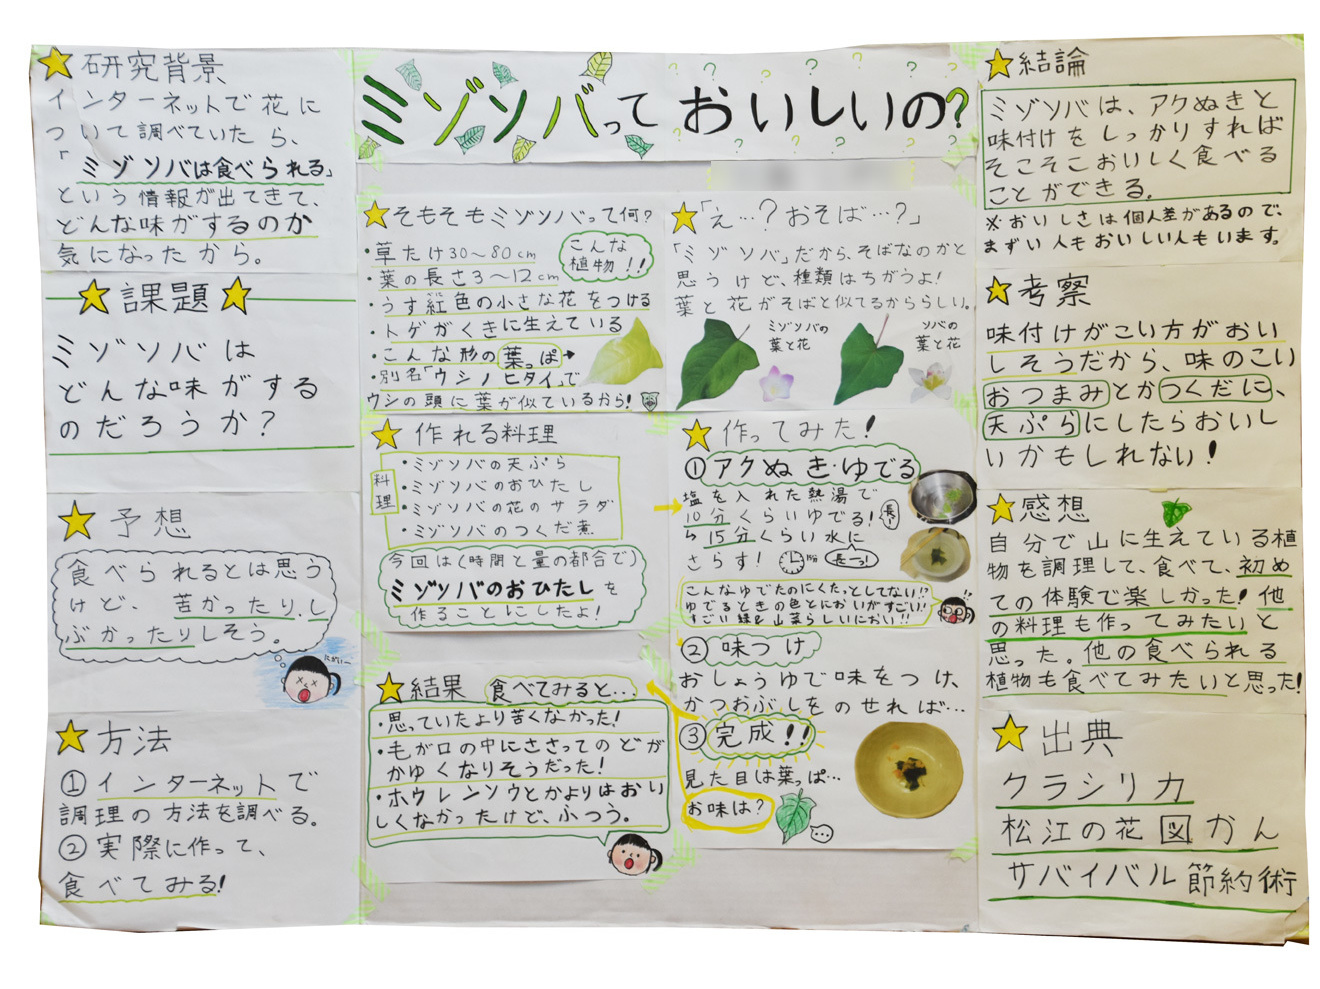 ミゾソバっておいしいの?
☆研究背景
インターネットで花に
ついて調べていたら、
「ミゾソバは食べられる」
という情報が出てきて、
どんな味がするのか
気になったから。
☆課題☆
ミゾソバは
どんな味がする
のだろうか?
☆予想
食べられるとは思う
けど、苦かったり、し
ぶかったりしそう。
にがい〜
☆方法
①インターネットで
調理の方法を調べる。
②実際に作って、
食べてみる!
☆そもそもミゾソバって何?
・草たけ30〜80cm
・葉の長さ3〜12cm
こんな
植物!!
・うす紅色の小さな花をつける
・トゲがくきに生えている
・こんな形の葉っぱ→
・別名「ウシノヒタイ」で
ウシの頭に葉が似ているから!
☆「え…?おそば…?」
「ミゾソバ」だから、そばなのかと
思うけど、種類はちがうよ!
葉と花がそばと似てるかららしい。
ミゾソバの
葉と花
ソバの
葉と花
☆作れる料理
料理
・ミゾソバの天ぷら
・ミゾソバのおひたし
・ミゾソバの花のサラダ
・ミゾソバのつくだ煮
今回は(時間と量の都合で)
ミゾソバのおひたしを
作ることにしたよ!
☆作ってみた!
①アクぬき・ゆでる
塩を入れた熱湯で
10分くらいゆでる!
長!
ら15分くらい水に
さらす!
長〜っ!
こんなゆでたのにくたっとしてない!!
ゆでるときの色とにおいがすごい!
すごい緑&山菜らしいにおい!!
②味つけ
おしょうゆで味をつけ、
かつおぶしをのせれば…
③完成!!
見た目は葉っぱ…
お味は?
☆結果 食べてみると…
・思っていたより苦くなかった!
・毛が口の中にささってのどが
かゆくなりそうだった!
・ホウレンソウとかよりはおい
しくなかったけど、ふつう。
☆結論
ミゾソバは、アクぬきと
味付けをしっかりすれば
そこそこおいしく食べる
ことができる。
※おいしさは個人差があるので、
まずい人もおいしい人もいます。
☆考察
味付けがこい方がおい
しそうだから、味のこい
おつまみとかつくだに、
天ぷらにしたらおいし
いかもしれない!
☆感想
自分で山に生えている植
物を調理して、食べて、初め
ての体験で楽しかった!他
の料理も作ってみたいと
思った。他の食べられる
植物も食べてみたいと思った!
☆出典
クラシリカ
松江の花図かん
サバイバル節約術